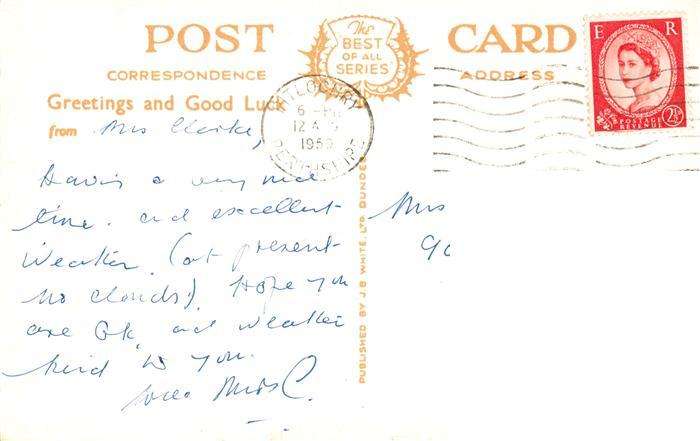 POST CARD
The
BEST
OF ALL
SERIES
CORRESPONDENCE
ADDRESS
Greetings and Good Luck
from Mrs Clarke,
PITLOCHRY
6 - PM
12 A
195
PERTHSHIRE
E R
POSTAGE
REVENUE
2½
Having a very nice
time. and excellent
weather. (at present
no clouds). Hope you
are Ok. and weather
kind to you.
Mrs C.
PUBLISHED BY J. B. WHITE, LTD. DUNDEE
Mrs